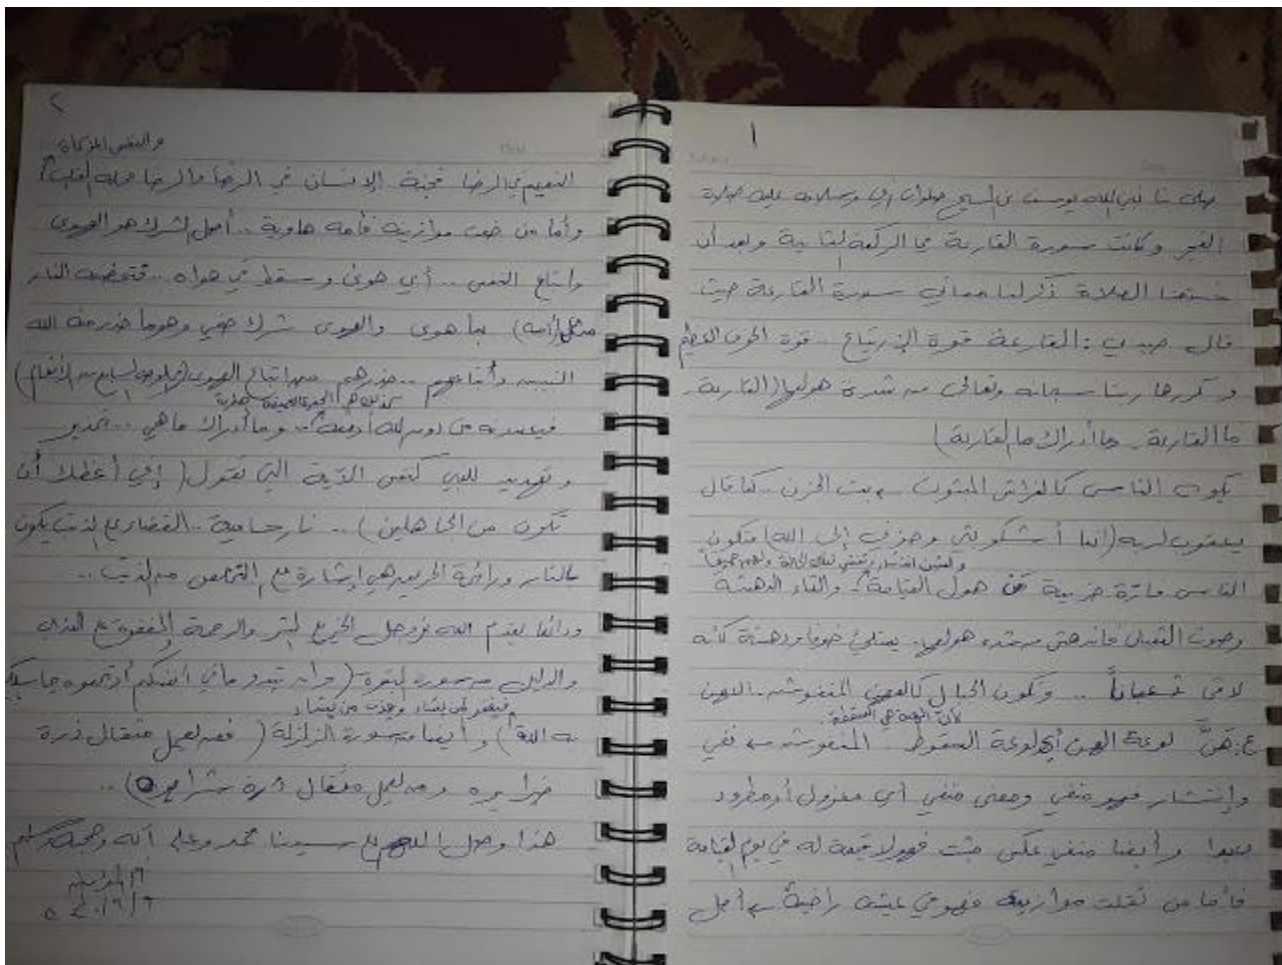 ١
صلى بنا نبي الله يوسف بن المسيح صلوات ربي وسلامه عليه صلاة
الفجر وكانت سورة القارعة في الركعة الثانية وبعد أن
الصلاة ذكر لنا معاني سورة القارعة حيث
قال حبيبي : القارعة قوة الإرتياع .. قوة الخوف العظيم
و كررها ربنا سبحانه وتعالى من شدة هولها (القارعة
ما القارعة .. وما أدراك ما القارعة)
يكون الناس كالفراش المبثوث بث الحزن .. كما قال
يعقوب لربه (إنما أشكو بثي وحزني إلى الله) فتكون
الناس حزينة من هول القيامة .. والفاء الدهشة
وصوت الثعبان فاندهش من شدة هولها .. يمتلئ خوفا ودهشة كأنه
لاقى ثعباناً .. وتكون الجبال كالعهن المنفوش .. العهن
لوعة الهن أي لوعة السقوط .. المنفوش من نفي
وإنتشار فهو منفي ومعنى منفي أي معزول أو مطرود
بعيدا وأيضا منفي عكس مثبت فهو لا قيمة له في يوم القيامة
فأما من ثقلت موازينه فهو في عيشة راضية أصل
٢
والنفس المزكاة
النعيم في الرضا فجنة الإنسان في الرضا والرضا محله القلب
وأما من خفت موازينه فأمه هاوية .. أصل الشرك هو الهوى
واتباع النفس .. أي هوى وسقط في هواه .. فتحتضنه النار
مثل (أمه) بما هوى والهوى شرك خفي وهو ما حذر منه الله
النبيين وأتباعهم .. حذرهم من اتباع الهوى
فيعبدونه من دون الله أو معه .. وما أدراك ما هي .. تحذير
و تهديد للنبي كنفس الآية التي تقول ( إني أعظك أن
تكون من الجاهلين ) .. نار حامية .. القصاص الذنب يكون
بالنار ورائحة الحريق هي إشارة مع التخلص من الذنب ..
ودائما يقدم الله عز وجل الخير مع الشر والرحمة المغفرة مع العذاب
والدليل من سورة البقرة (وإن تبدوا ما في أنفسكم أو تخفوه يحاسبكم
فيغفر لمن يشاء ويعذب من يشاء
به الله) و أيضا من سورة الزلزلة ( فمن يعمل مثقال ذرة
خيرا يره ومن يعمل مثقال ذرة شرا يره) ..
هذا وصل اللهم على سيدنا محمد وعلى آله وصحبه وسلم